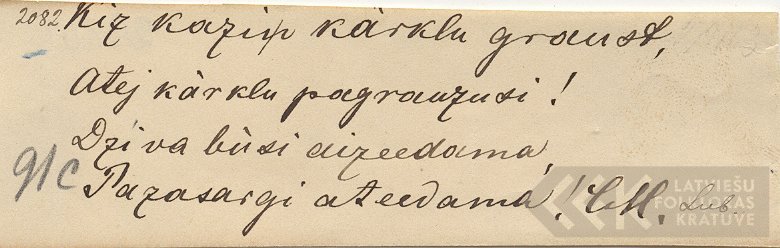 2082. Kiz kaziņ kārklu graust,
Atej kārklu pagrauzusi!
Dzīva būsi aizeedama,
91c Pazasargi ateedama! LM, Lub.
LATVIEŠU
FOLKLORAS
KRATUVE